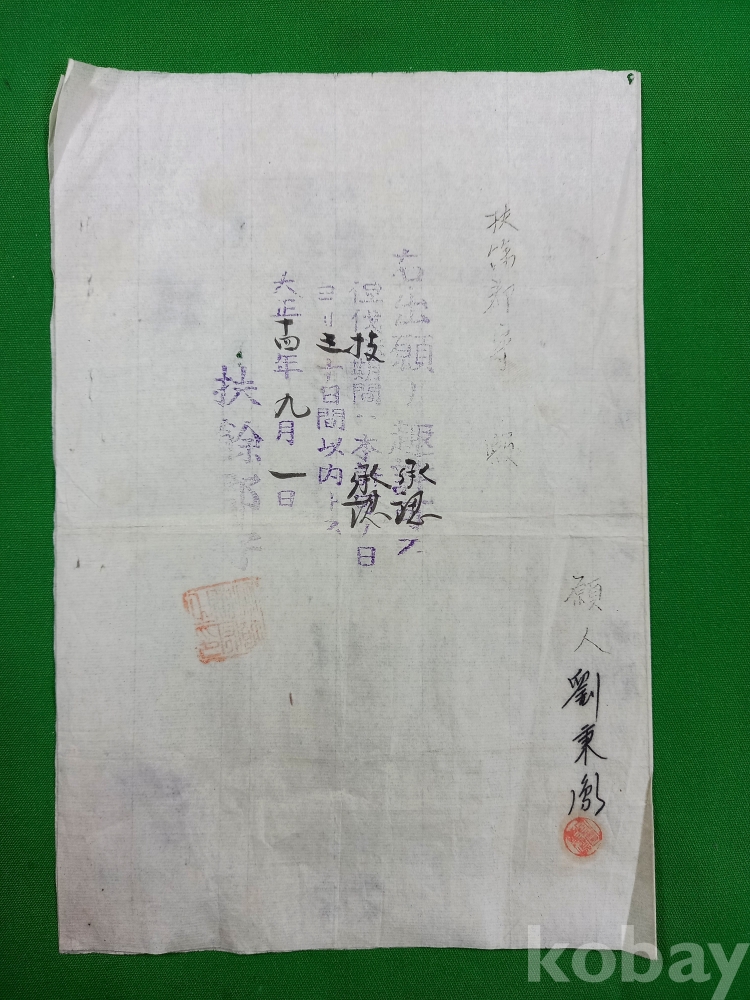 願人 劉秉胤
扶餘郡守 殿
右出願ノ 承認ス
但伐 期間ハ本 承認ノ日
ヨリ三十日間以内トス
大正十四年九月一日
扶餘郡守
kobay